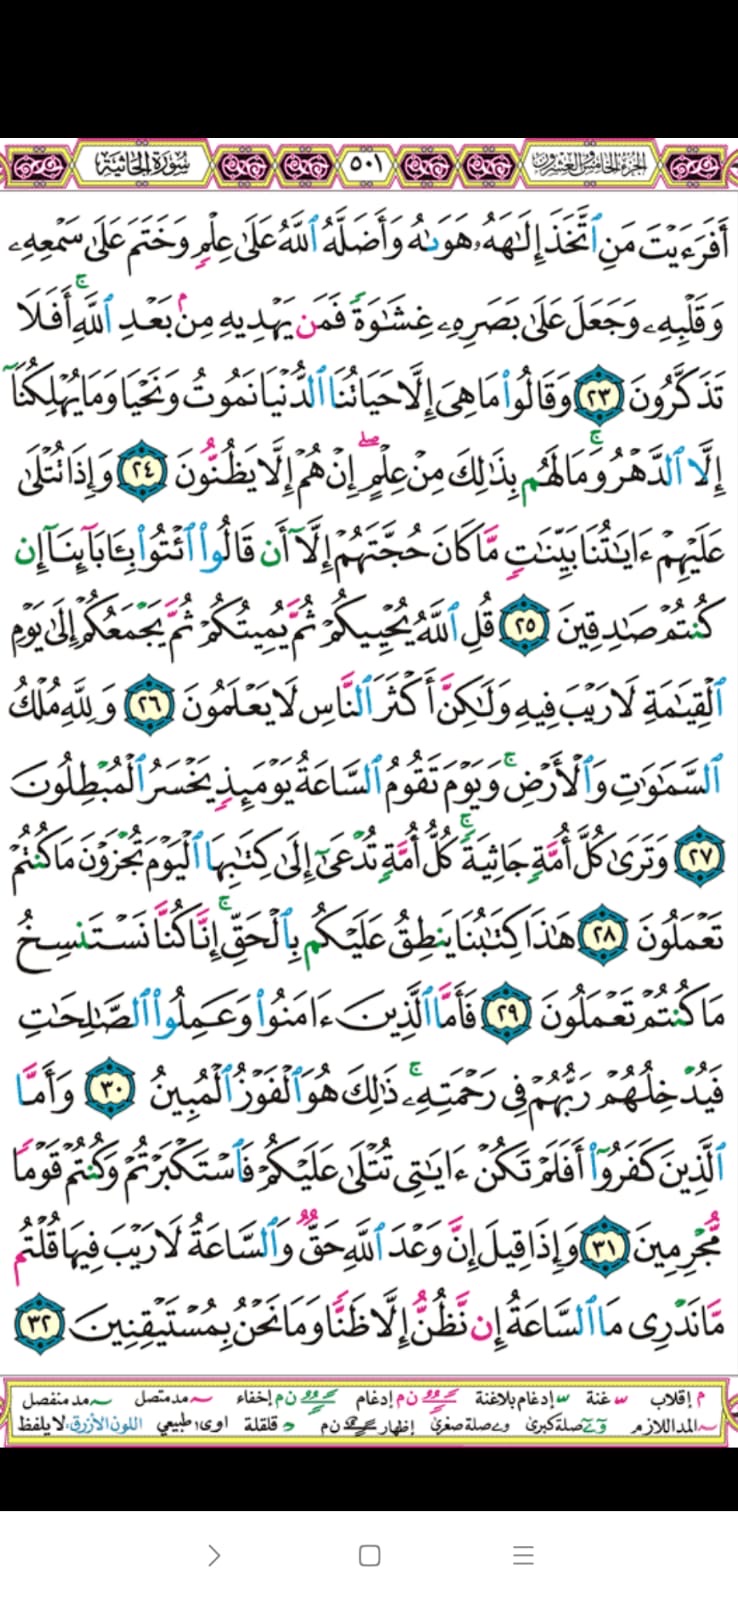 الجزء الخامس والعشرون ٥٠١ سورة الجاثية
أَفَرَءَيْتَ مَنِ ٱتَّخَذَ إِلَٰهَهُۥ هَوَىٰهُ وَأَضَلَّهُ ٱللَّهُ عَلَىٰ عِلْمٍ وَخَتَمَ عَلَىٰ سَمْعِهِۦ
وَقَلْبِهِۦ وَجَعَلَ عَلَىٰ بَصَرِهِۦ غِشَٰوَةً فَمَن يَهْدِيهِ مِنۢ بَعْدِ ٱللَّهِ ۚ أَفَلَا
تَذَكَّرُونَ ٢٣ وَقَالُوا۟ مَا هِىَ إِلَّا حَيَاتُنَا ٱلدُّنْيَا نَمُوتُ وَنَحْيَا وَمَا يُهْلِكُنَآ
إِلَّا ٱلدَّهْرُ ۚ وَمَا لَهُم بِذَٰلِكَ مِنْ عِلْمٍ ۖ إِنْ هُمْ إِلَّا يَظُنُّونَ ٢٤ وَإِذَا تُتْلَىٰ
عَلَيْهِمْ ءَايَٰتُنَا بَيِّنَٰتٍ مَّا كَانَ حُجَّتَهُمْ إِلَّآ أَن قَالُوا۟ ٱئْتُوا۟ بِـَٔابَآئِنَآ إِن
كُنتُمْ صَٰدِقِينَ ٢٥ قُلِ ٱللَّهُ يُحْيِيكُمْ ثُمَّ يُمِيتُكُمْ ثُمَّ يَجْمَعُكُمْ إِلَىٰ يَوْمِ
ٱلْقِيَٰمَةِ لَا رَيْبَ فِيهِ وَلَٰكِنَّ أَكْثَرَ ٱلنَّاسِ لَا يَعْلَمُونَ ٢٦ وَلِلَّهِ مُلْكُ
ٱلسَّمَٰوَٰتِ وَٱلْأَرْضِ ۚ وَيَوْمَ تَقُومُ ٱلسَّاعَةُ يَوْمَئِذٍ يَخْسَرُ ٱلْمُبْطِلُونَ
٢٧ وَتَرَىٰ كُلَّ أُمَّةٍ جَاثِيَةً ۚ كُلُّ أُمَّةٍ تُدْعَىٰٓ إِلَىٰ كِتَٰبِهَا ٱلْيَوْمَ تُجْزَوْنَ مَا كُنتُمْ
تَعْمَلُونَ ٢٨ هَٰذَا كِتَٰبُنَا يَنطِقُ عَلَيْكُم بِٱلْحَقِّ ۚ إِنَّا كُنَّا نَسْتَنسِخُ
مَا كُنتُمْ تَعْمَلُونَ ٢٩ فَأَمَّا ٱلَّذِينَ ءَامَنُوا۟ وَعَمِلُوا۟ ٱلصَّٰلِحَٰتِ
فَيُدْخِلُهُمْ رَبُّهُمْ فِى رَحْمَتِهِۦ ۚ ذَٰلِكَ هُوَ ٱلْفَوْزُ ٱلْمُبِينُ ٣٠ وَأَمَّا
ٱلَّذِينَ كَفَرُوٓا۟ أَفَلَمْ تَكُنْ ءَايَٰتِى تُتْلَىٰ عَلَيْكُمْ فَٱسْتَكْبَرْتُمْ وَكُنتُمْ قَوْمًا
مُّجْرِمِينَ ٣١ وَإِذَا قِيلَ إِنَّ وَعْدَ ٱللَّهِ حَقٌّ وَٱلسَّاعَةُ لَا رَيْبَ فِيهَا قُلْتُم
مَّا نَدْرِى مَا ٱلسَّاعَةُ إِن نَّظُنُّ إِلَّا ظَنًّا وَمَا نَحْنُ بِمُسْتَيْقِنِينَ ٣٢
م إقلاب غنة إدغام بلاغنة ن م إدغام ن م إخفاء مد متصل مد منفصل
المد اللازم صلة كبرى صلة صغرى إظهار ن م قلقلة اوى طبيعي اللون الأزرق، لا يلفظ